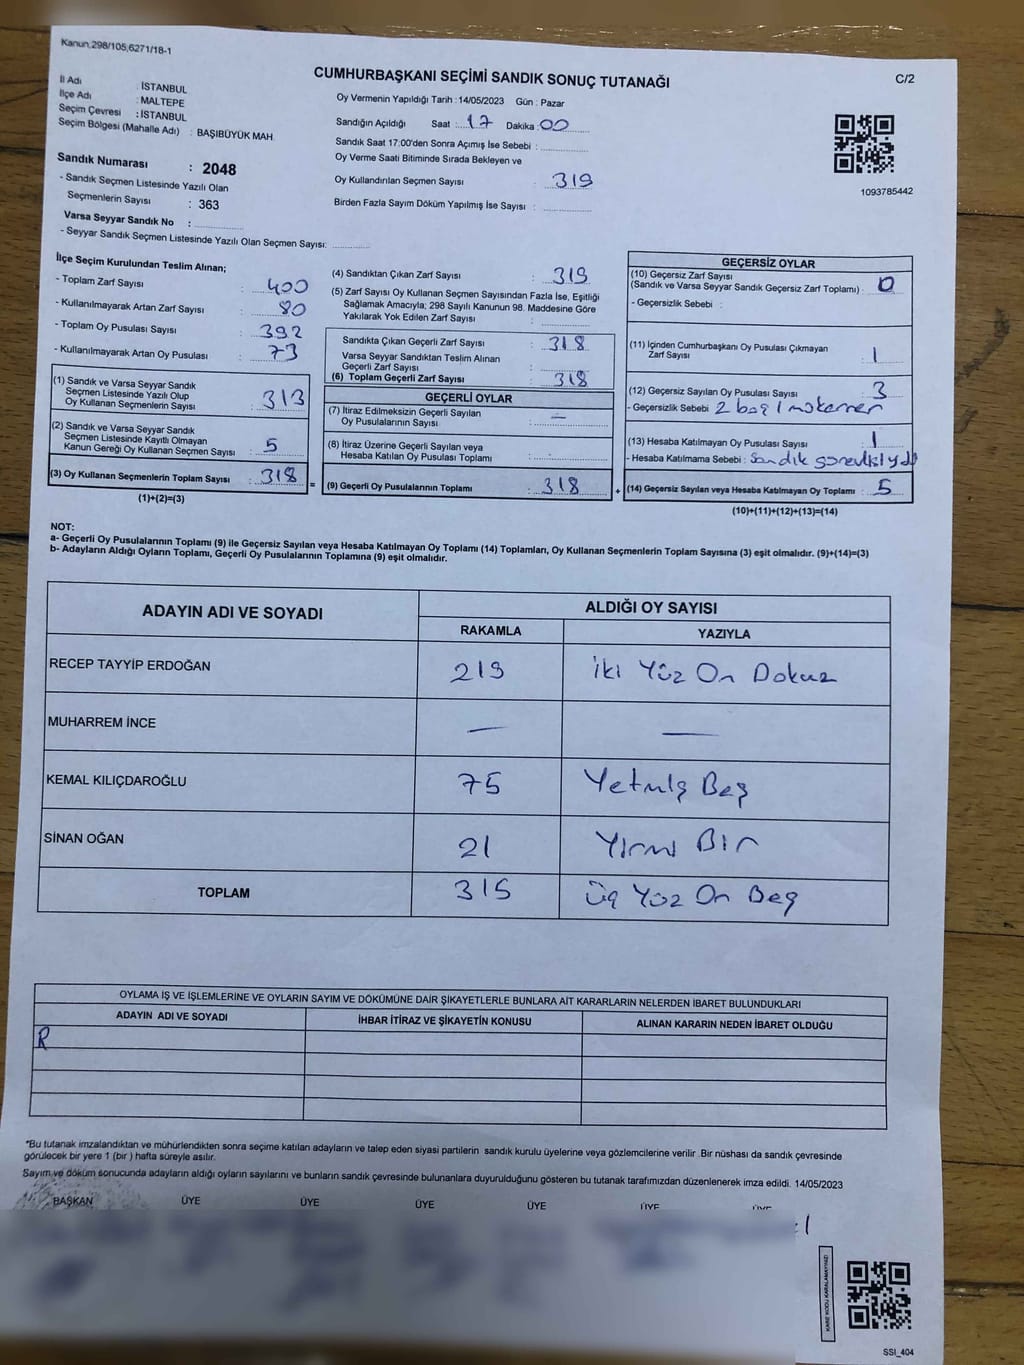 Kanun,298/105,6271/18-1
C/2
CUMHURBAŞKANI SEÇİMİ SANDIK SONUÇ TUTANAĞI
İl Adı : İSTANBUL
İlçe Adı : MALTEPE
Seçim Çevresi : İSTANBUL
Seçim Bölgesi (Mahalle Adı) : BAŞIBÜYÜK MAH.
Sandık Numarası : 2048
- Sandık Seçmen Listesinde Yazılı Olan
Seçmenlerin Sayısı : 363
Varsa Seyyar Sandık No :
- Seyyar Sandık Seçmen Listesinde Yazılı Olan Seçmen Sayısı:
Oy Vermenin Yapıldığı Tarih : 14/05/2023 Gün : Pazar
Sandığın Açıldığı Saat : 17 Dakika : 00
Sandık Saat 17:00'den Sonra Açımış İse Sebebi :
Oy Verme Saati Bitiminde Sırada Bekleyen ve
Oy Kullandırılan Seçmen Sayısı : 319
Birden Fazla Sayım Döküm Yapılmış İse Sayısı :
1093785442
İlçe Seçim Kurulundan Teslim Alınan;
- Toplam Zarf Sayısı : 400
- Kullanılmayarak Artan Zarf Sayısı : 80
- Toplam Oy Pusulası Sayısı : 392
- Kullanılmayarak Artan Oy Pusulası : 73
(1) Sandık ve Varsa Seyyar Sandık
Seçmen Listesinde Yazılı Olup
Oy Kullanan Seçmenlerin Sayısı : 313
(2) Sandık ve Varsa Seyyar Sandık
Seçmen Listesinde Kayıtlı Olmayan
Kanun Gereği Oy Kullanan Seçmen Sayısı : 5
(3) Oy Kullanan Seçmenlerin Toplam Sayısı : 318
(1)+(2)=(3)
(4) Sandıktan Çıkan Zarf Sayısı : 319
(5) Zarf Sayısı Oy Kullanan Seçmen Sayısından Fazla İse, Eşitliği
Sağlamak Amacıyla; 298 Sayılı Kanunun 98. Maddesine Göre
Yakılarak Yok Edilen Zarf Sayısı :
Sandıkta Çıkan Geçerli Zarf Sayısı : 318
Varsa Seyyar Sandıktan Teslim Alınan
Geçerli Zarf Sayısı :
(6) Toplam Geçerli Zarf Sayısı : 318
GEÇERLİ OYLAR
(7) İtiraz Edilmeksizin Geçerli Sayılan
Oy Pusulalarının Sayısı : —
(8) İtiraz Üzerine Geçerli Sayılan veya
Hesaba Katılan Oy Pusulası Toplamı :
= (9) Geçerli Oy Pusulalarının Toplamı : 318 +
GEÇERSİZ OYLAR
(10) Geçersiz Zarf Sayısı
(Sandık ve Varsa Seyyar Sandık Geçersiz Zarf Toplamı) : 0
- Geçersizlik Sebebi :
(11) İçinden Cumhurbaşkanı Oy Pusulası Çıkmayan
Zarf Sayısı : 1
(12) Geçersiz Sayılan Oy Pusulası Sayısı : 3
- Geçersizlik Sebebi : 2 boş 1 mükerrer
(13) Hesaba Katılmayan Oy Pusulası Sayısı : 1
- Hesaba Katılmama Sebebi : Sandık
(14) Geçersiz Sayılan veya Hesaba Katılmayan Oy Toplamı : 5
(10)+(11)+(12)+(13)=(14)
NOT:
a- Geçerli Oy Pusulalarının Toplamı (9) ile Geçersiz Sayılan veya Hesaba Katılmayan Oy Toplamı (14) Toplamları, Oy Kullanan Seçmenlerin Toplam Sayısına (3) eşit olmalıdır. (9)+(14)=(3)
b- Adayların Aldığı Oyların Toplamı, Geçerli Oy Pusulalarının Toplamına (9) eşit olmalıdır.
ADAYIN ADI VE SOYADI
ALDIĞI OY SAYISI
RAKAMLA YAZIYLA
RECEP TAYYİP ERDOĞAN 219 İki Yüz On Dokuz
MUHARREM İNCE — —
KEMAL KILIÇDAROĞLU 75 Yetmiş Beş
SİNAN OĞAN 21 Yirmi Bir
TOPLAM 315 Üç Yüz On Beş
OYLAMA İŞ VE İŞLEMLERİNE VE OYLARIN SAYIM VE DÖKÜMÜNE DAİR ŞİKAYETLERLE BUNLARA AİT KARARLARIN NELERDEN İBARET BULUNDUKLARI
ADAYIN ADI VE SOYADI İHBAR İTİRAZ VE ŞİKAYETİN KONUSU ALINAN KARARIN NEDEN İBARET OLDUĞU
R
*Bu tutanak imzalandıktan ve mühürlendikten sonra seçime katılan adayların ve talep eden siyasi partilerin sandık kurulu üyelerine veya gözlemcilerine verilir .Bir nüshası da sandık çevresinde
görülecek bir yere 1 (bir ) hafta süreyle asılır.
Sayım ve döküm sonucunda adayların aldığı oyların sayılarını ve bunların sandık çevresinde bulunanlara duyurulduğunu gösteren bu tutanak tarafımızdan düzenlenerek imza edildi. 14/05/2023
BAŞKAN ÜYE ÜYE ÜYE ÜYE ÜYE ÜYE
KARE KODU KARALAMAYINIZ!
SSI_404